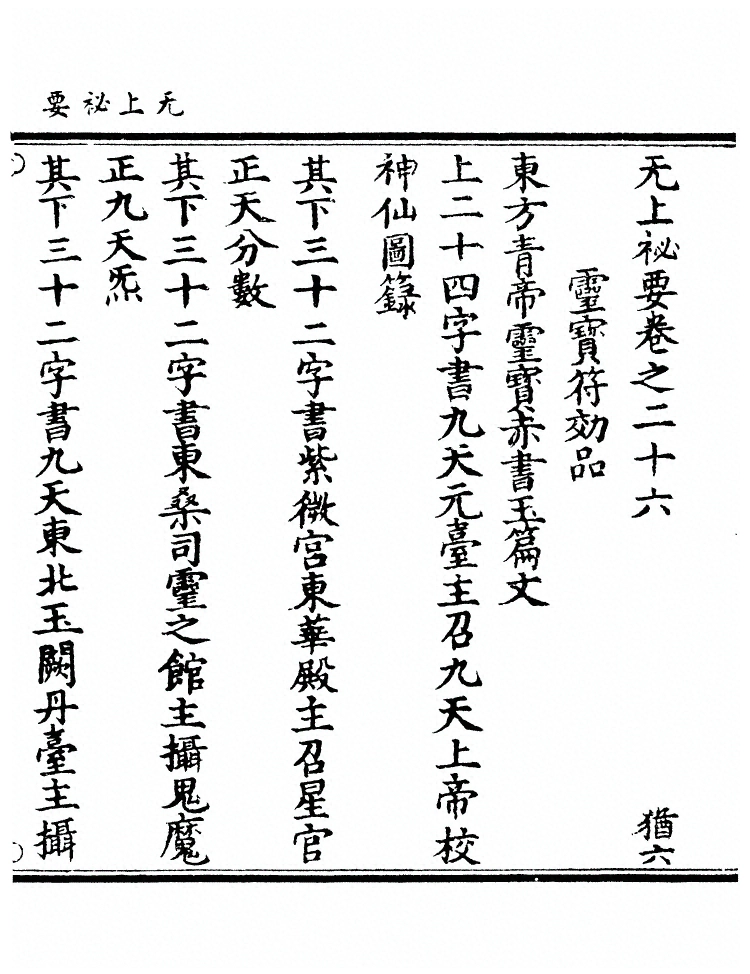 无上祕要
无上祕要卷之二十六
猶六
靈寶符効品
東方青帝靈寶赤書玉篇文
上二十四字書九天元臺主召九天上帝校
神仙圖籙
其下三十二字書紫微宮東華殿主召星官
正天分數
其下三十二字書東桑司靈之館主攝鬼魔
正九天炁
其下三十二字書九天東北玉闕丹臺主攝